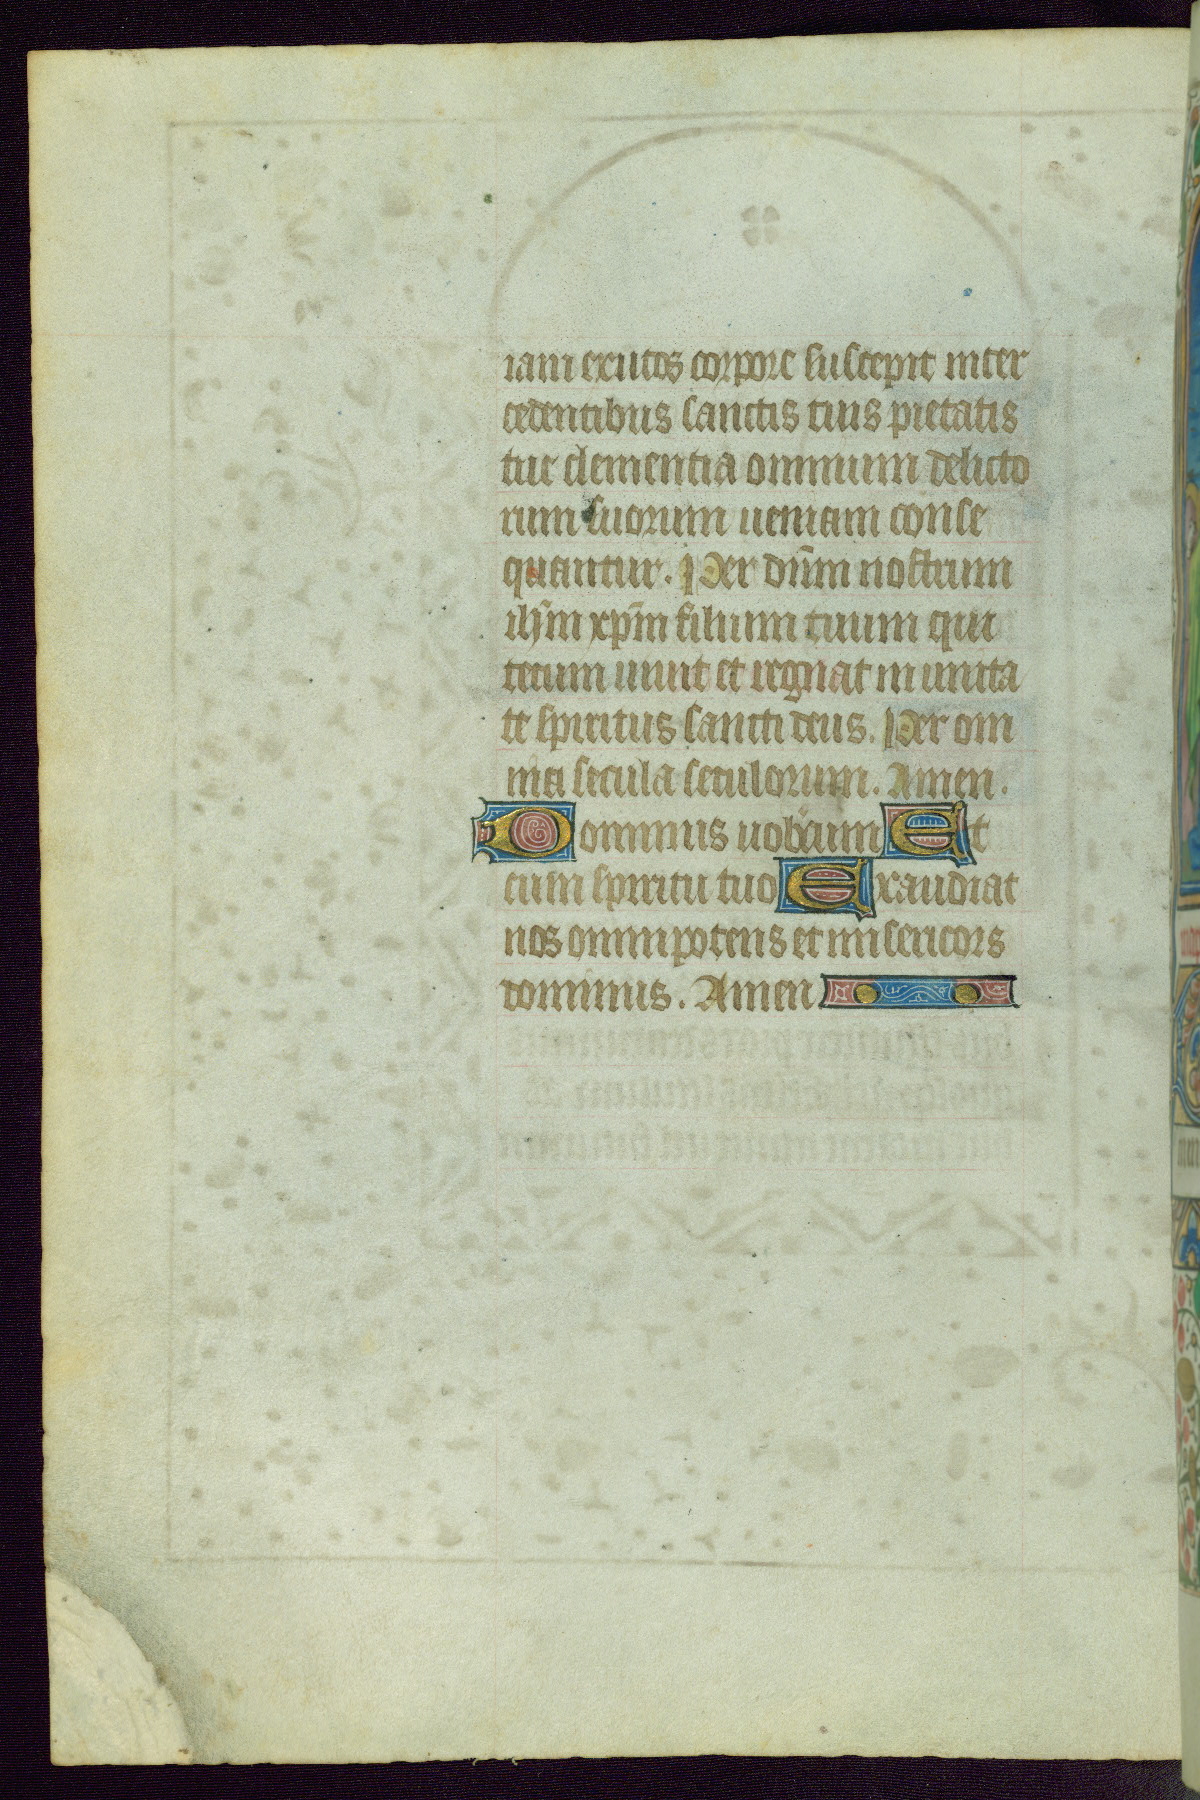 iam exutos corpore suscepit inter
cedentibus sanctis tuis pietatis
tue clementia omnium delicto
rum suorum ueniam conse
quantur. Per dñm nostrum
ihm̄ xp̄m filium tuum qui
tecum uiuit et regnat in unita
te spiritus sancti deus. Per om
nia secula seculorum. Amen.
Dominus uobiscum Et
cum spiritu tuo Exaudiat
nos omnipotens et misericors
dominus. Amen